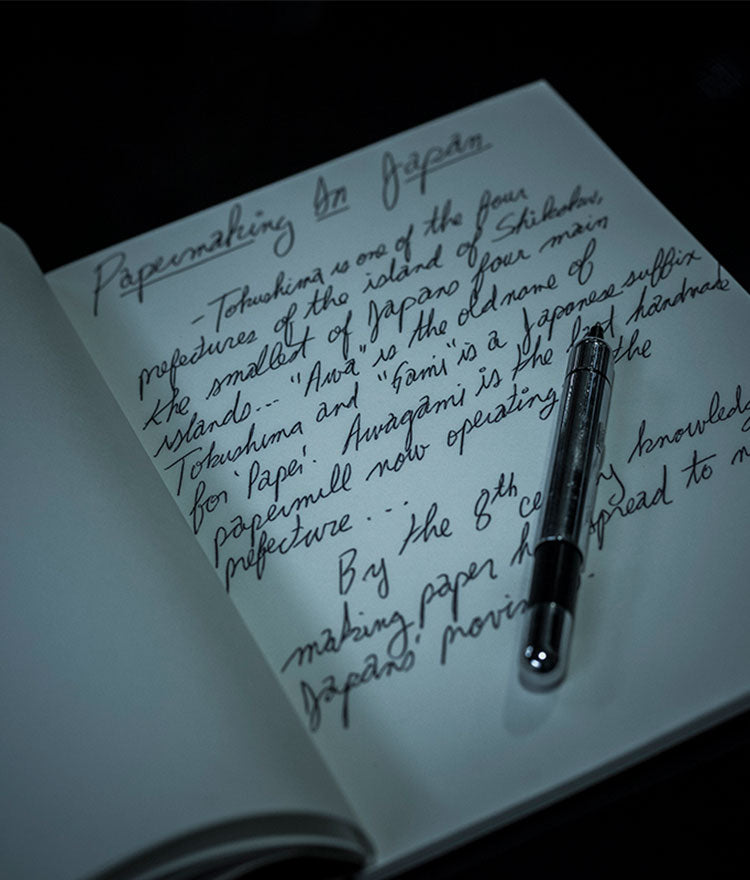 Papermaking In Japan
- Tokushima is one of the four
prefectures of the island of Shikoku,
the smallest of Japans four main
islands... "Awa" is the old name of
Tokushima and "Gami" is a Japanese suffix
for 'Paper'. Awagami is the last handmade
papermill now operating the
prefecture...
By the 8th knowledg
making paper spread to
Japans'